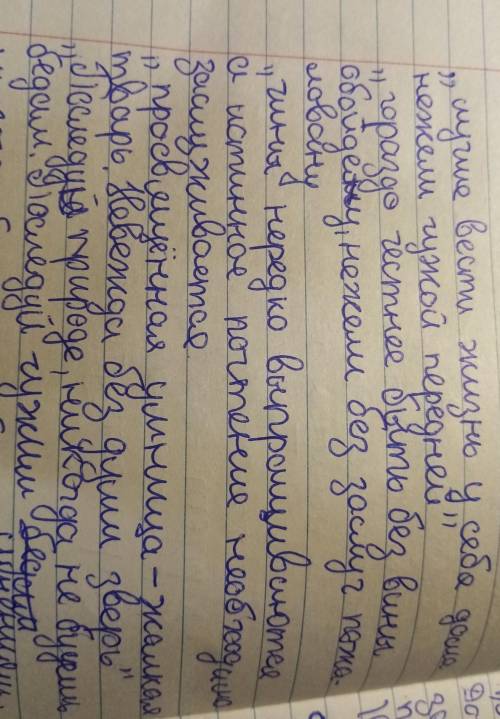 „ лучше вести жизнь у себя дома
нежели чужой передней"
„ гораздо честнее быть без вины
обойдену, нежели без заслуг пожа-
ловану
„ чины нередко выпрашиваются
а истинное почтение необходимо
заслуживается
„ просвещённая умница – жалкая
тварь. Невежда без души зверь"
„ Последуй природе, никогда не будешь
беден. Последуй чужим